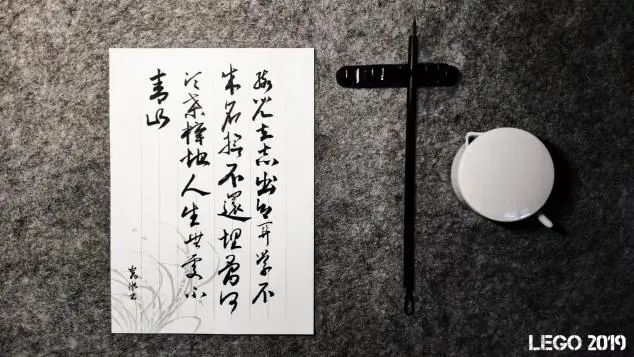 孩儿立志出乡关学不
成名誓不還埋骨何
须桑梓地人生无处不
青山
LEGO 2019